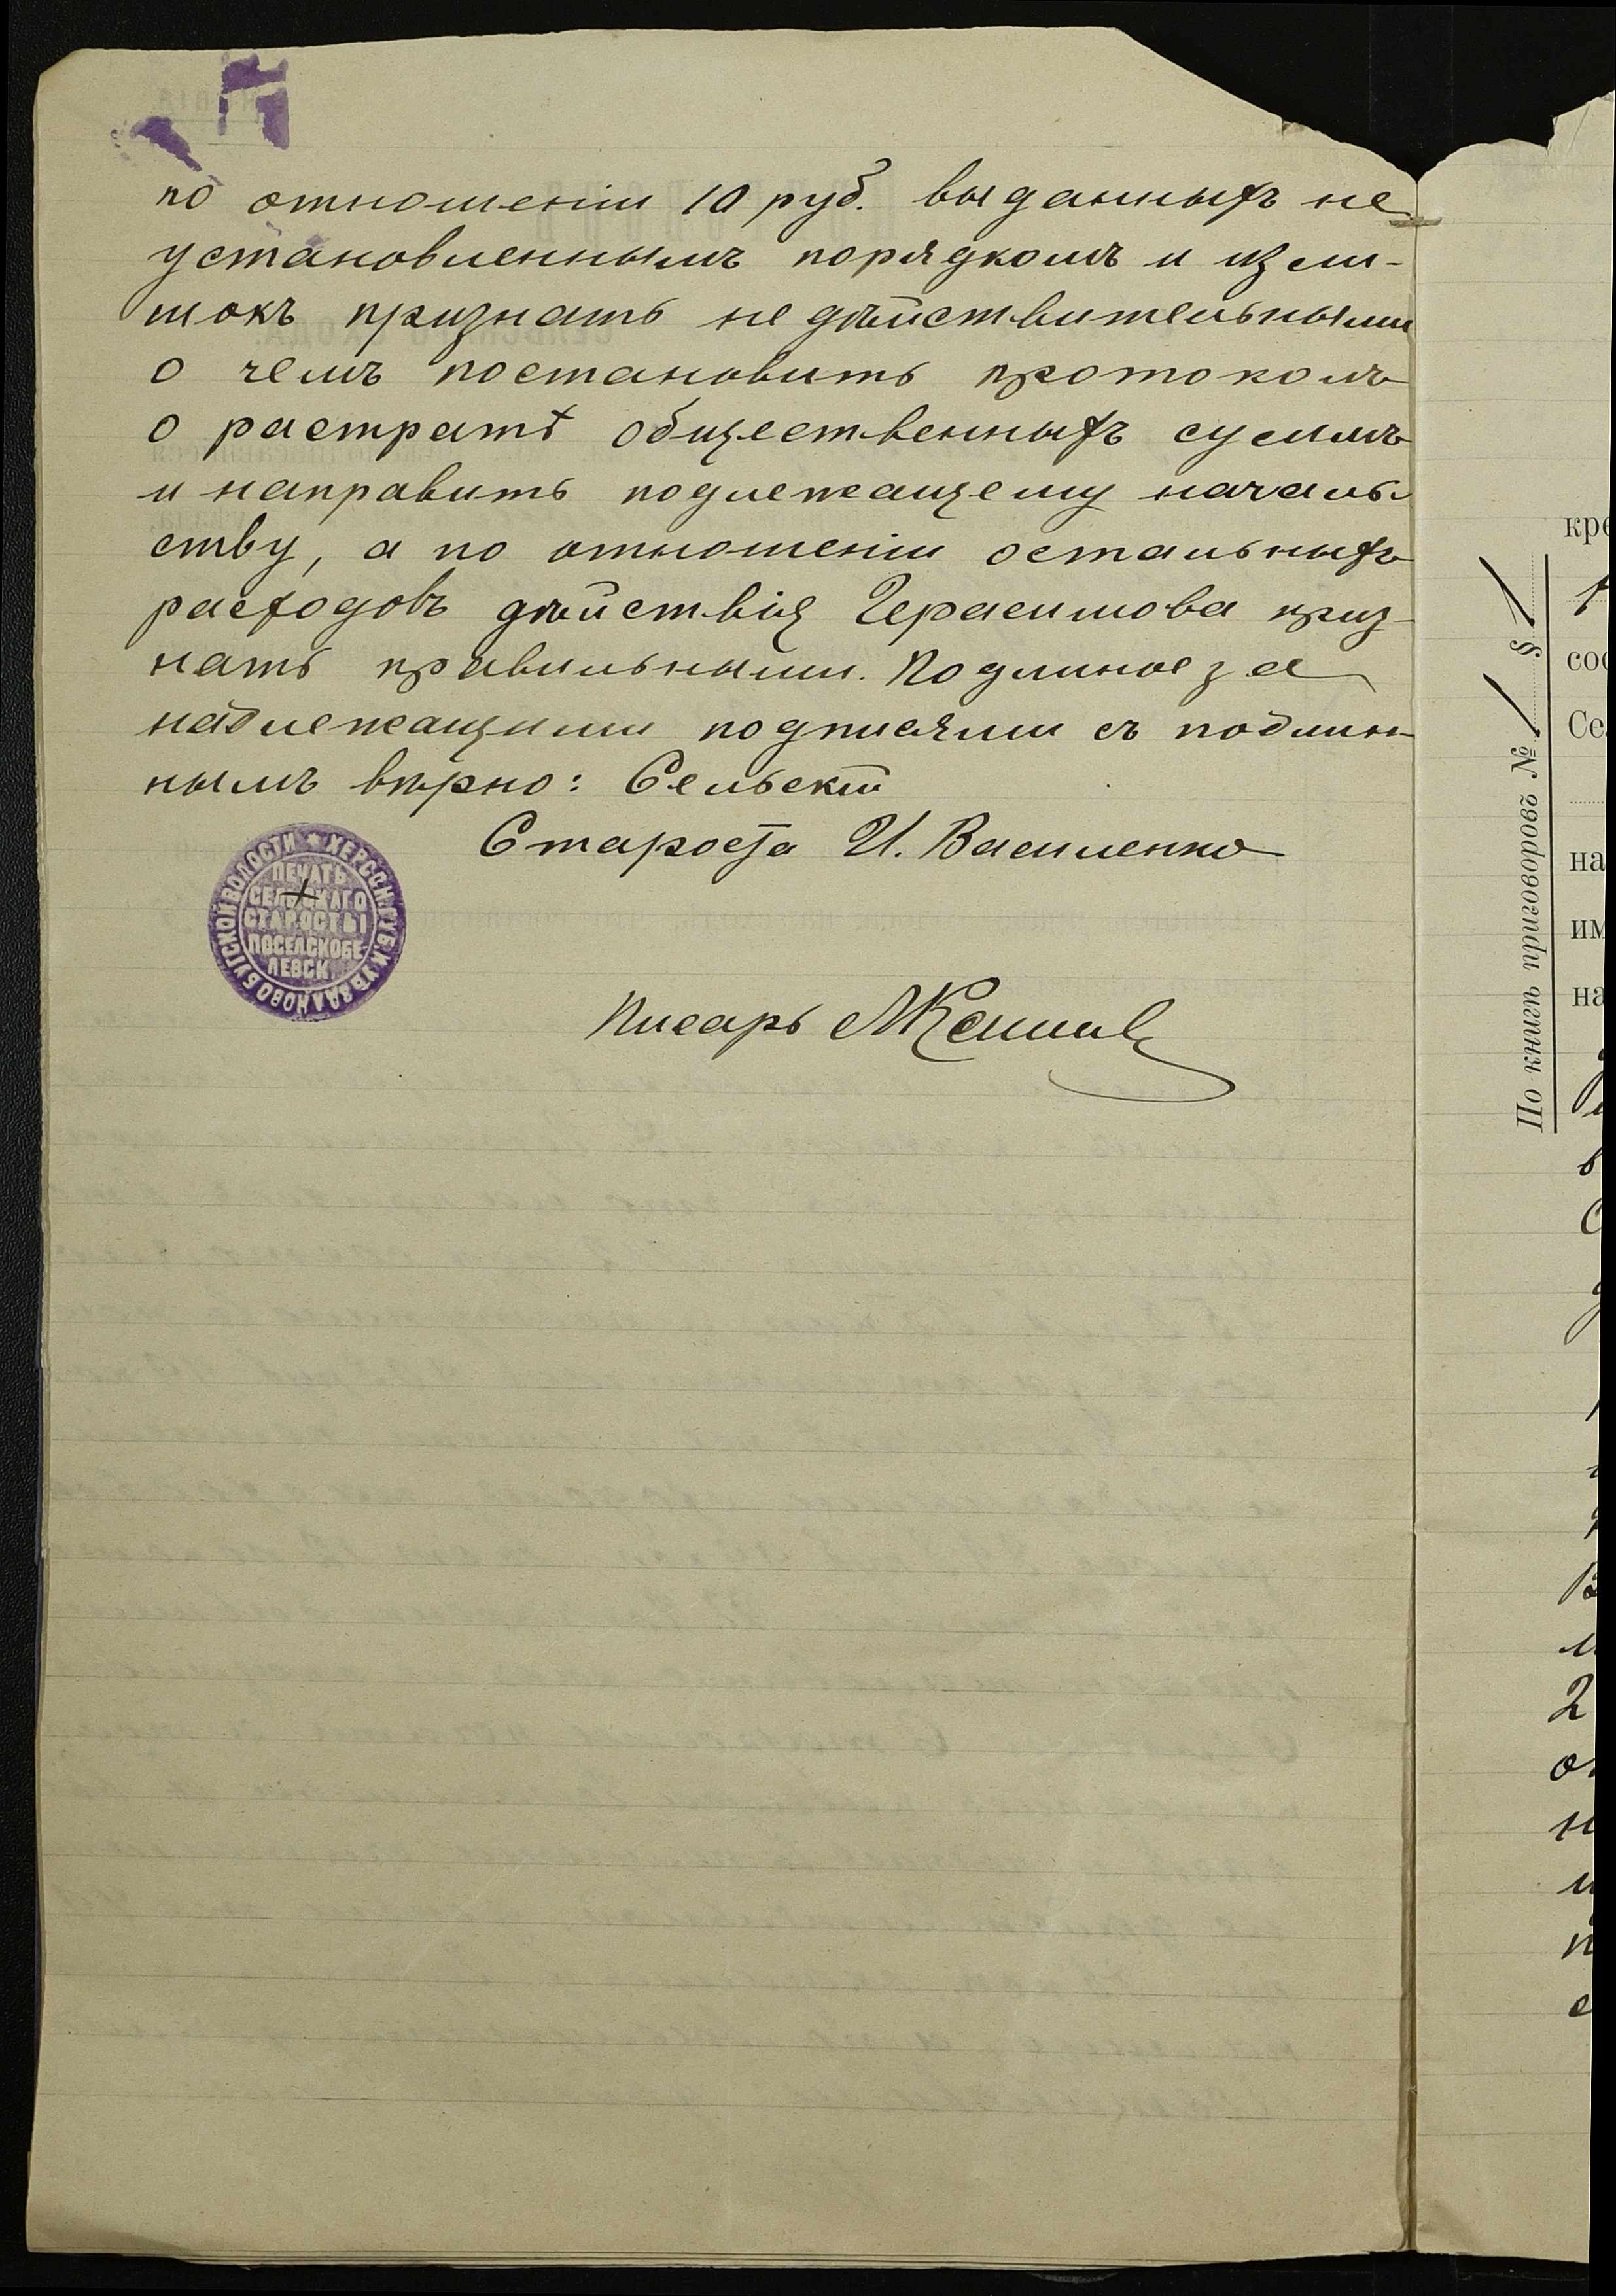 по отношенiи 10 руб. выданныхъ не
установленнымъ порядкомъ и изли-
шокъ признать не дѣйствительными
о чемъ постановить протоколъ
о растратѣ общественныхъ суммъ
и направить подлежащему началь-
ству, а по отношенiи остальныхъ
расходовъ дѣйствiя Герасимова приз-
нать правильными. Подлиное за
надлежащими подписями съ подлин-
нымъ вѣрно: Сельскiй
Староста И. Василенко
ПЕЧАТЬ
СЕЛЬСКАГО
СТАРОСТЫ
ПОСЕЛ.СКОБЕ
ЛЕВСК
НОВОБУГСКОЙ ВОЛОСТИ ★ ХЕРССК.ГУБ.
Писарь
По книгѣ приговоровъ № § 
кре
сос
Се
на
им
на